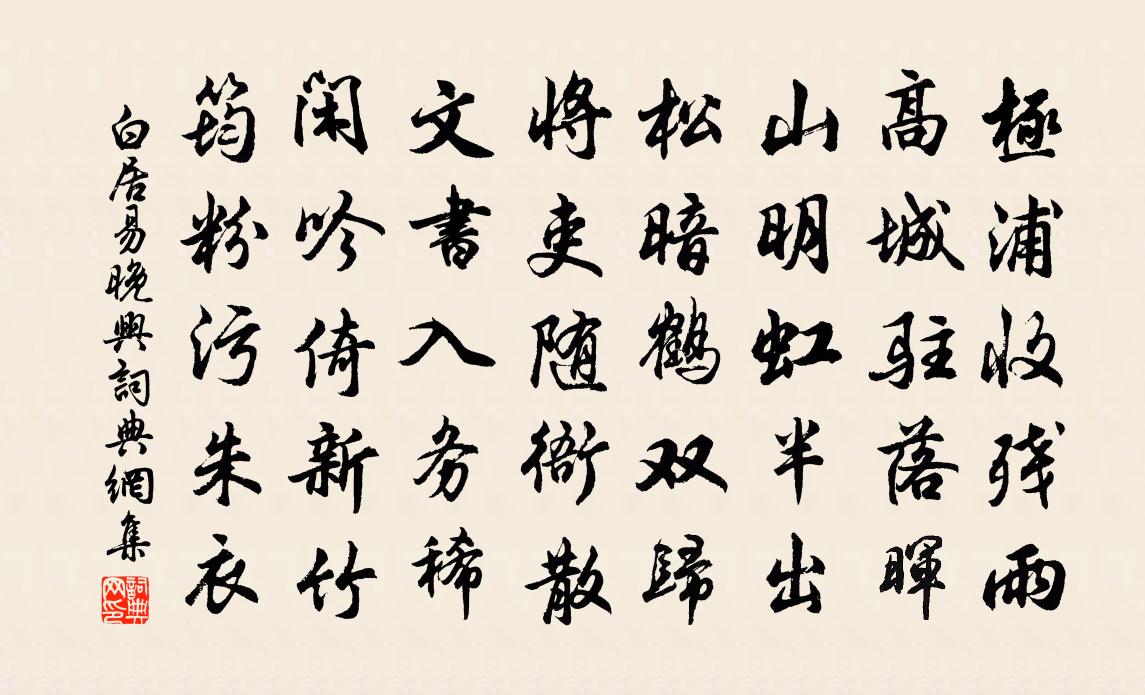 極浦收残雨
高城駐落暉
山明虹半出
松暗鶴双歸
將吏随衙散
文書入务稀
閑吟倚新竹
筠粉污朱衣
白居易晚興詞典網集
詞典网印